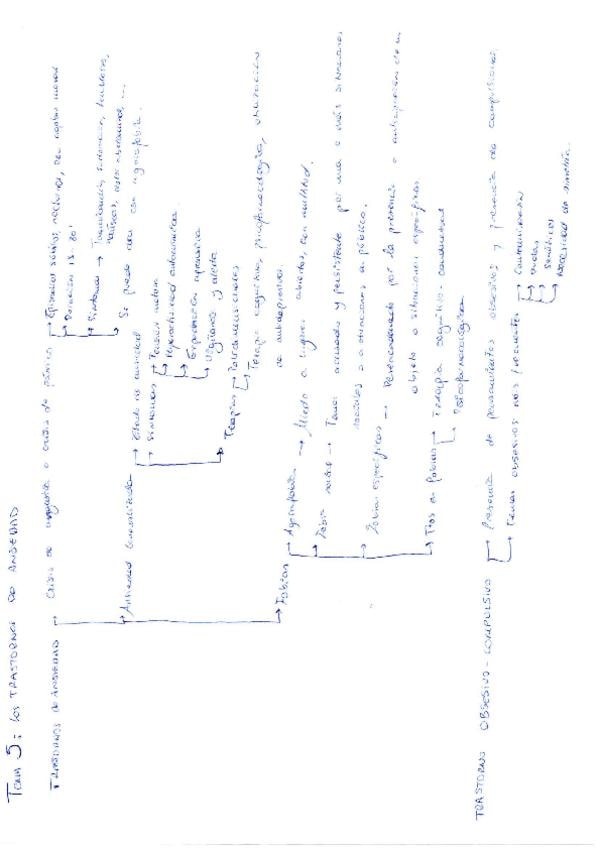 TEMA 5: LOS TRASTORNOS DE ANSIEDAD
TRASTORNOS DE ANSIEDAD
Crisis de angustia o crisis de pánico
Episodios súbitos, nocturnos, con mucho miedo
Duración 15-30'
Síntomas → Taquicardia, sudoración, temblores,
náuseas, ...
Se puede dar con agorafobia.
Ansiedad Generalizada
Estado de ansiedad
Síntomas
Tensión motora
Hiperactividad autonómica
Expectación aprensiva
Vigilancia y alerta
Terapias
Terapia cognitiva, psicofarmacológica, utilización
de antidepresivos.
Fobias
Agorafobia → Miedo a lugares abiertos, con multitud.
Fobia social → Temor acusado y persistente por una o más situaciones
sociales o actuaciones en público.
Fobias específicas → Desencadenado por la presencia o anticipación de un
objeto o situaciones específicas
Ttos en fobias
Terapia cognitivo-conductual
Psicofarmacológica
TRASTORNO OBSESIVO-COMPULSIVO
Presencia de pensamientos obsesivos y presencia de compulsiones.
Temas obsesivos más frecuentes
Contaminación
Dudas
Somáticos
Necesidad de simetría.